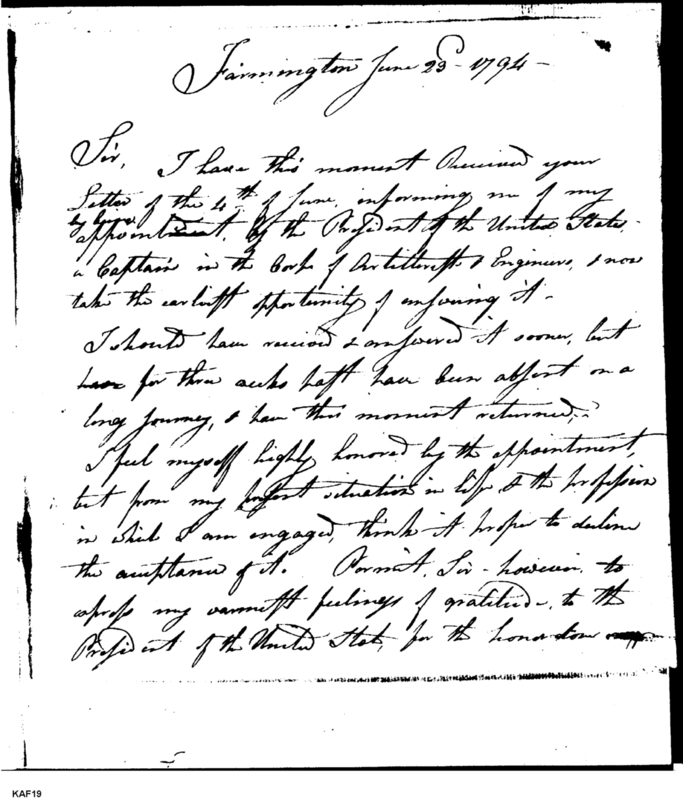 Farmington June 23d - 1794 -
Sir, I have this moment Received your
Letter of the 4th of June, informing me of my
appointment, by the President of the United States,
a Captain in the Corps of Artillerists & Engineers, & now
take the earliest opportunity of answering it -
I should have received & answered it sooner, but
for three weeks past have been absent on a
long journey, & have this moment returned,
I feel myself highly honored by the appointment,
but from my present situation in life, & the profession
in which I am engaged, think it proper to decline
the acceptance of it. Permit, Sir - however, to
express my warmest feelings of gratitude, to the
President of the United States, for the honor done
KAF19